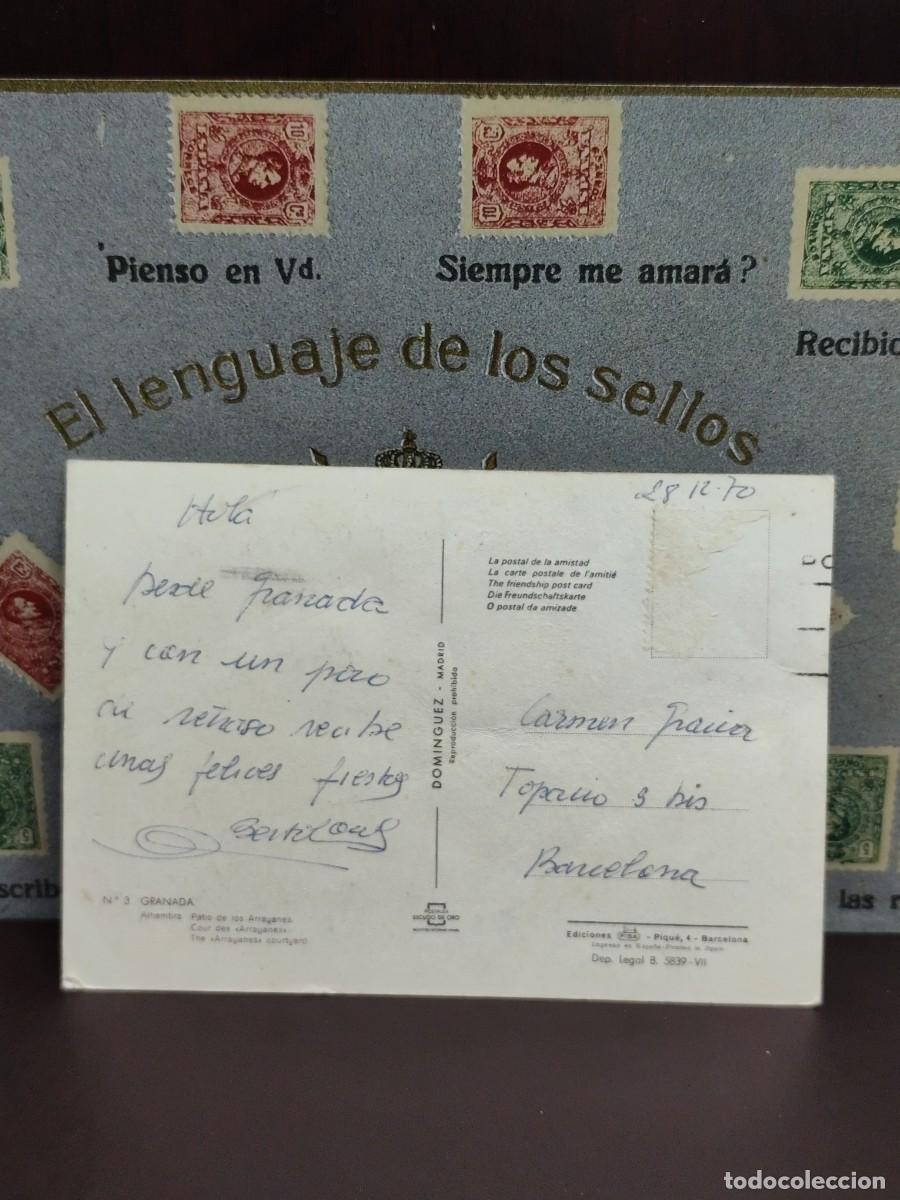 Pienso en Vd.
Siempre me amará?
El lenguaje de los sellos
28 12·70
Hola
Desde Granada
y con un poco
de retraso recibe
unas felices fiestas
La postal de la amistad
La carte postale de l'amitié
The friendship post card
Die Freundschaftskarte
O postal da amizade
DOMINGUEZ - MADRID
Reproducción prohibida
Carmen
3 bis
Barcelona
N.° 3 GRANADA
Alhambra Patio de los Arrayanes
Cour des «Arrayanes»
The «Arrayanes» courtyard
POSTALES
ESCUDO DE ORO
Ediciones FISA - Piqué, 4 - Barcelona
Impreso en España-Printed in Spain
Dep. Legal B. 5839-VII
las
todocoleccion